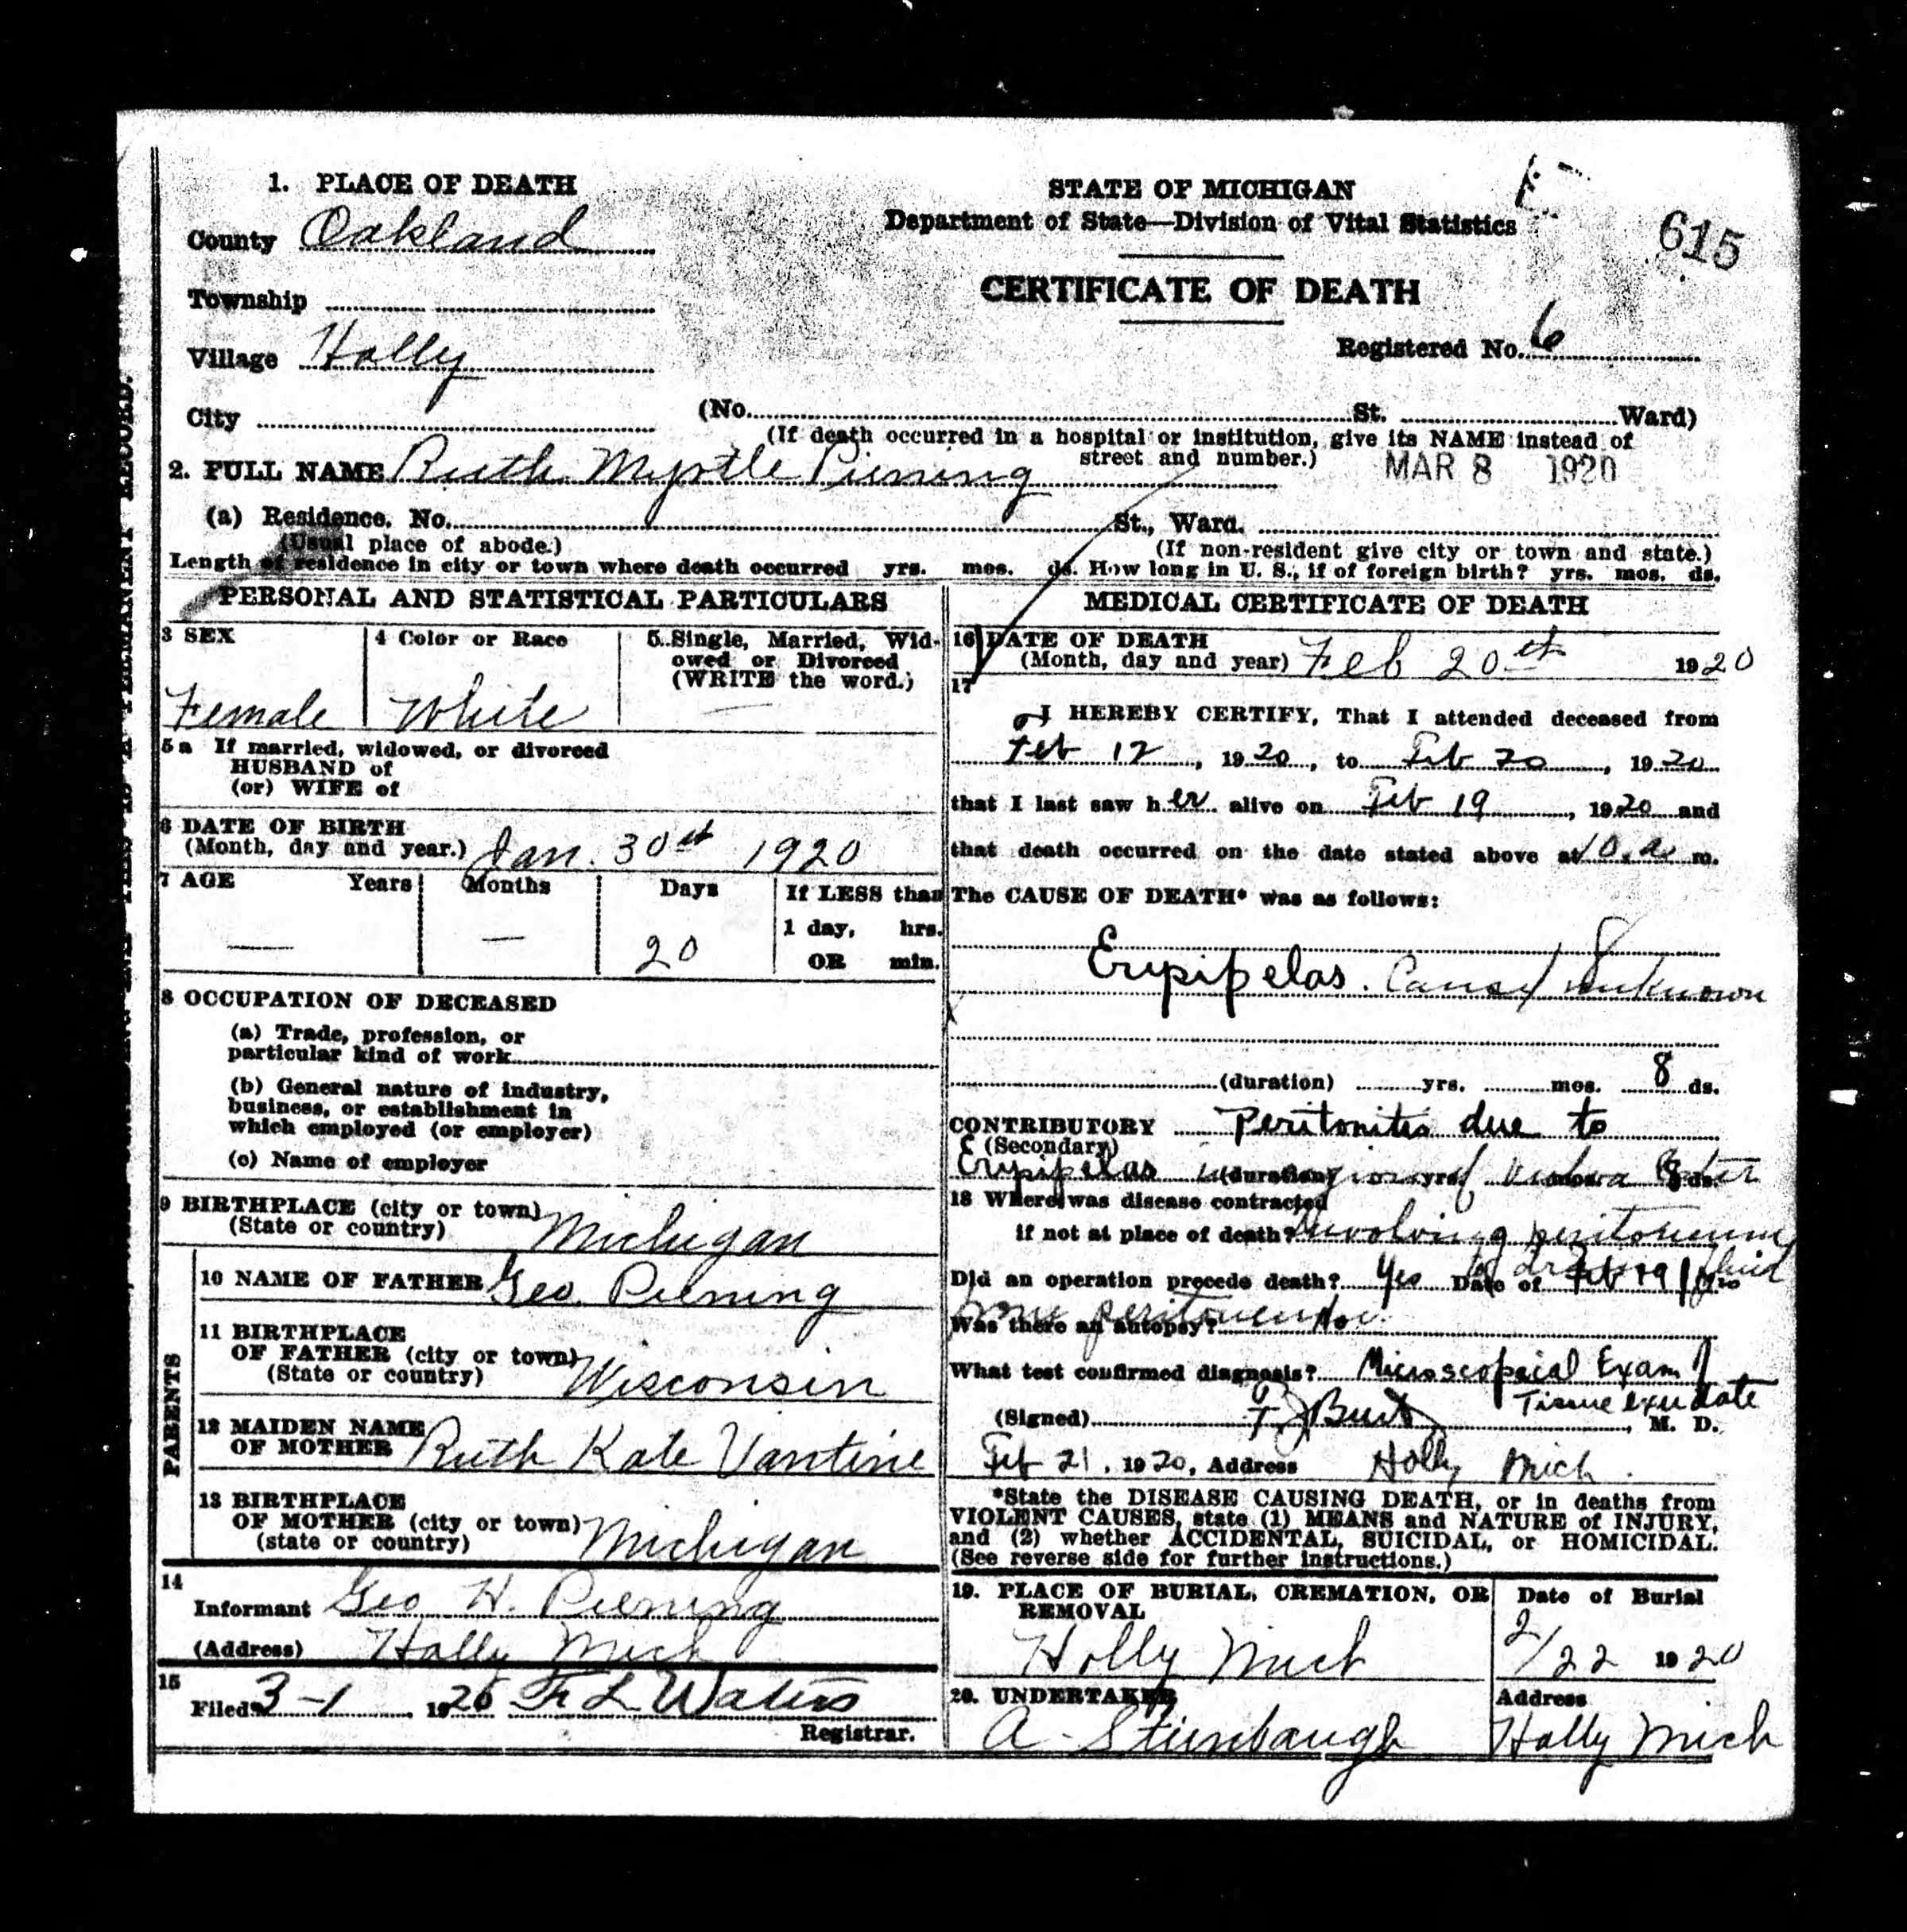 1. PLACE OF DEATH
County Oakland
Township
Village Holly
City
STATE OF MICHIGAN
Department of State—Division of Vital Statistics
615
CERTIFICATE OF DEATH
Registered No. 6
(No. St. Ward)
(If death occurred in a hospital or institution, give its NAME instead of
street and number.)
MAR 8 1920
2. FULL NAME Ruth Myrtle Piening
(a) Residence. No. St., Ward.
(Usual place of abode.) (If non-resident give city or town and state.)
Length of residence in city or town where death occurred yrs. mos. ds. How long in U. S., if of foreign birth? yrs. mos. ds.
PERSONAL AND STATISTICAL PARTICULARS
3 SEX
Female
4 Color or Race
White
5. Single, Married, Wid-
owed or Divorced
(WRITE the word.)
—
5a If married, widowed, or divorced
HUSBAND of
(or) WIFE of
6 DATE OF BIRTH
(Month, day and year.) Jan. 30st 1920
7 AGE Years Months Days If LESS than
1 day, hrs.
— — 20 OR min.
8 OCCUPATION OF DECEASED
(a) Trade, profession, or
particular kind of work
(b) General nature of industry,
business, or establishment in
which employed (or employer)
(c) Name of employer
9 BIRTHPLACE (city or town)
(State or country) Michigan
PARENTS
10 NAME OF FATHER Geo. Piening
11 BIRTHPLACE
OF FATHER (city or town)
(State or country) Wisconsin
12 MAIDEN NAME
OF MOTHER Ruth Kate Vantine
13 BIRTHPLACE
OF MOTHER (city or town)
(state or country) Michigan
14
Informant Geo H. Piening
(Address) Holly Mich
15
Filed 3-1 1920 F L Waters
Registrar.
MEDICAL CERTIFICATE OF DEATH
16 DATE OF DEATH
(Month, day and year) Feb 20th 1920
17
I HEREBY CERTIFY, That I attended deceased from
Feb 12, 1920, to Feb 20, 1920
that I last saw her alive on Feb 19, 1920 and
that death occurred on the date stated above at 10.a. m.
The CAUSE OF DEATH* was as follows:
Erypipelas. Cause unknown
(duration) yrs. mos. 8 ds.
CONTRIBUTORY Peritonitis due to
(Secondary)
Erypipelas (duration) yrs. mos. ds.
18 Where was disease contracted
if not at place of death? involving peritoneum
Did an operation precede death? Yes Date of Feb 19 to drain fluid
from peritoneum
Was there an autopsy? No.
What test confirmed diagnosis? Microscopical Exam of
Tissue exudate
(Signed) Burt, M. D.
Feb 21, 1920, Address Holly Mich.
*State the DISEASE CAUSING DEATH, or in deaths from
VIOLENT CAUSES, state (1) MEANS and NATURE of INJURY,
and (2) whether ACCIDENTAL, SUICIDAL, or HOMICIDAL.
(See reverse side for further instructions.)
19. PLACE OF BURIAL, CREMATION, OR
REMOVAL
Holly Mich
Date of Burial
2/22 1920
20. UNDERTAKER
A. Steinbaugh
Address
Holly Mich